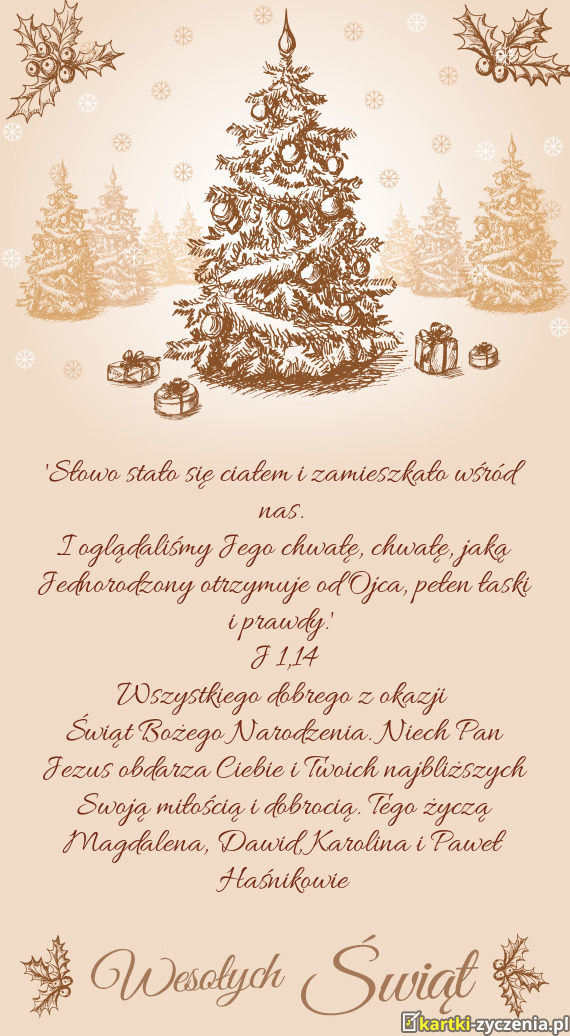 'Słowo stało się ciałem i zamieszkało wśród
nas.
I oglądaliśmy Jego chwałę, chwałę, jaką
Jednorodzony otrzymuje od Ojca, pełen łaski
i prawdy.'
J 1,14
Wszystkiego dobrego z okazji
Świąt Bożego Narodzenia. Niech Pan
Jezus obdarza Ciebie i Twoich najbliższych
Swoją miłością i dobrocią. Tego życzą
Magdalena, Dawid, Karolina i Paweł
Haśnikowie
Wesołych Świąt
kartki-zyczenia.pl